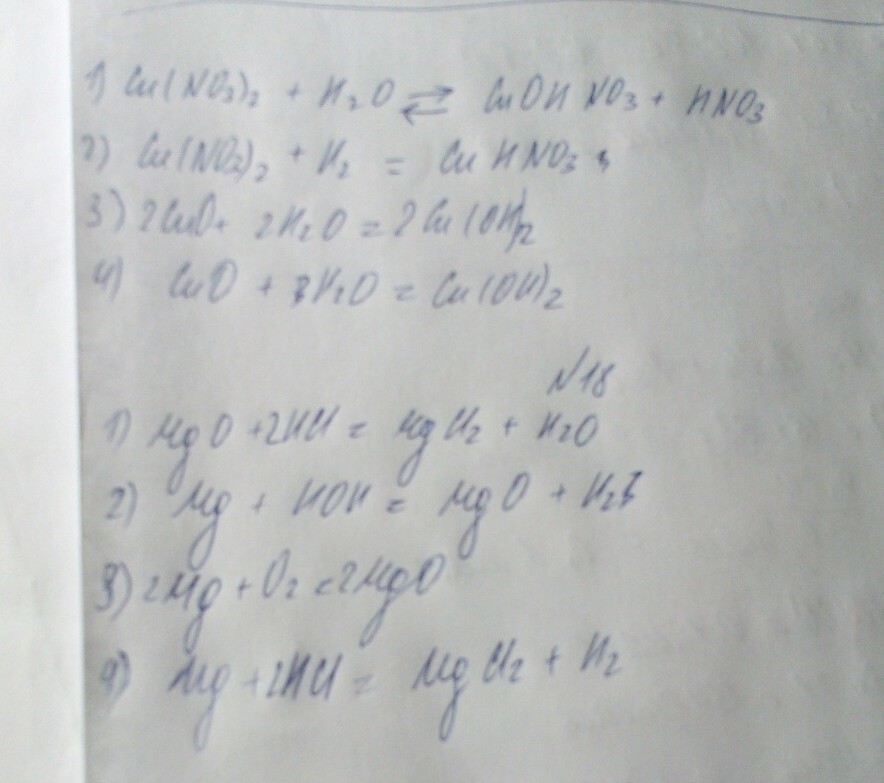 1) Cu(NO3)2 + H2O ⇄ CuOHNO3 + HNO3
2) Cu(NO3)2 + H2 = CuHNO3
3) 2CuO + 2H2O = 2Cu(OH)2
4) CuO + H2O = Cu(OH)2
N18
1) MgO + 2HCl = MgCl2 + H2O
2) Mg + HOH = MgO + H2
3) 2Mg + O2 = 2MgO
4) Mg + 2HCl = MgCl2 + H2